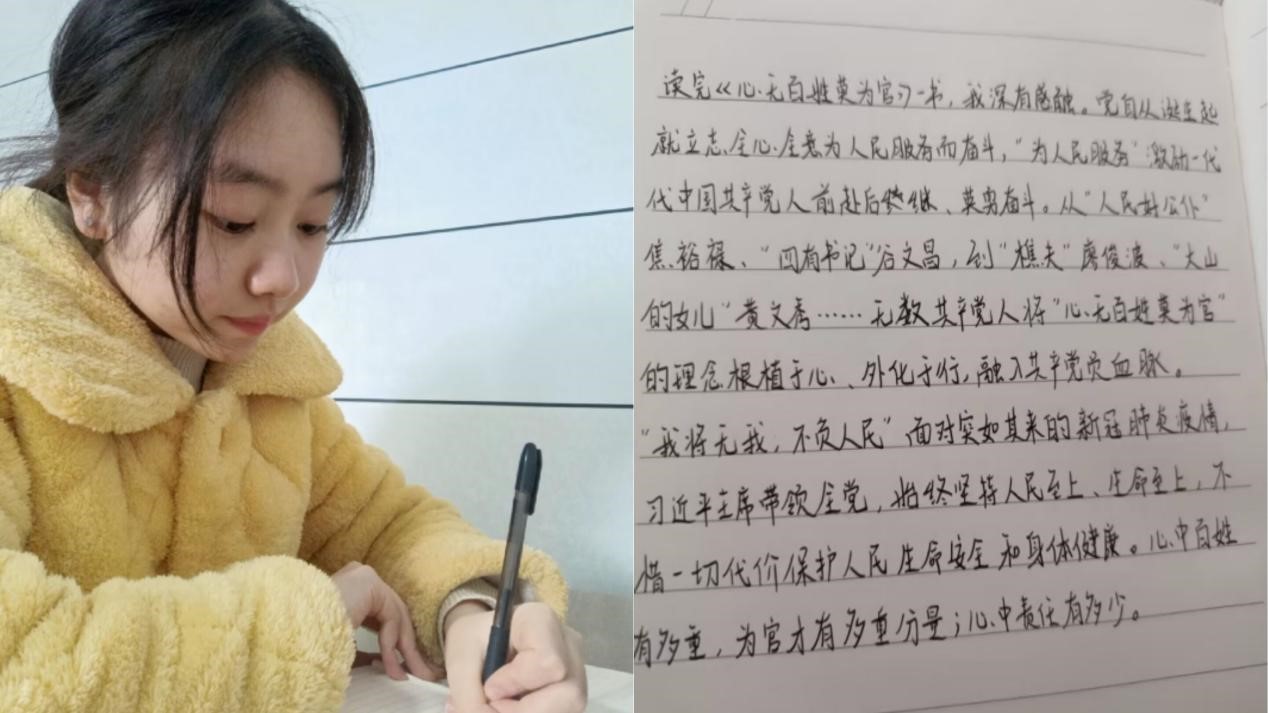 读完《心无百姓莫为官》一书，我深有感触。党自从诞生起
就立志全心全意为人民服务而奋斗，“为人民服务”激励一代
代中国共产党人前赴后继、英勇奋斗。从“人民好公仆”
焦裕禄、“四有书记”谷文昌，到“樵夫”廖俊波、“大山
的女儿”黄文秀……无数共产党人将“心无百姓莫为官”
的理念根植于心、外化于行，融入共产党员血脉。
“我将无我，不负人民”面对突如其来的新冠肺炎疫情，
习近平主席带领全党，始终坚持人民至上、生命至上，不
惜一切代价保护人民生命安全和身体健康。心中百姓
有多重，为官才有多重分量；心中责任有多少。